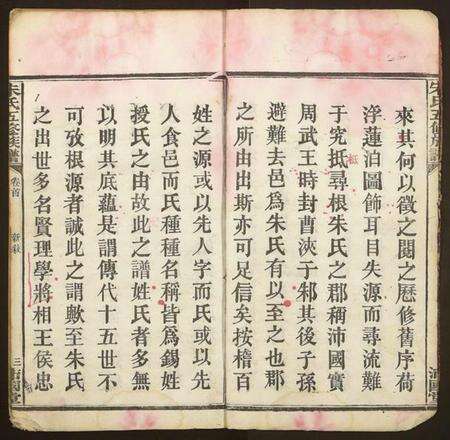 來其何以徵之閱之歷修舊序荷
浮蓮泊圖飾耳目失源而尋流難
于究抵尋根朱氏之郡稱沛國實
周武王時封曹浹于邾其後子孫
避難去邑為朱氏有以至之也郡
之所由出斯亦可足信矣按檣百
姓之源或以先人字而氏或以先
人食邑而氏種種名稱皆為錫姓
授氏之由故此之譜姓氏者多無
以明其底蘊是謂傳代十五世不
可攷根源者誠此之謂歟至朱氏
之出世多名賢理學將相王侯忠
朱氏五修族譜
卷首
三